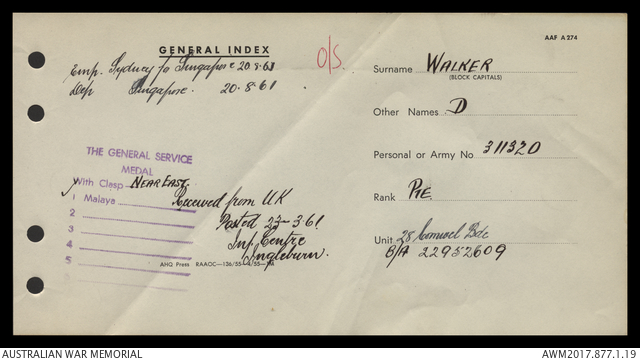 AAF A274
GENERAL INDEX
O/S.
Emp. Sydney to Singapore 20.8.61
Dep Singapore. 20.8.61
Surname WALKER
(BLOCK CAPITALS)
Other Names D
Personal or Army No 311320
Rank PTE.
Unit 28 Comwel Bde
B/A 22952609
THE GENERAL SERVICE
MEDAL
With Clasp NEAR EAST.
1 Malaya
2
3
4
5
Received from UK
Posted 23-3-61
Inf. Centre
Ingleburn.
AHQ Press RAAOC—136/55—4/55—
AUSTRALIAN WAR MEMORIAL
AWM2017.877.1.19